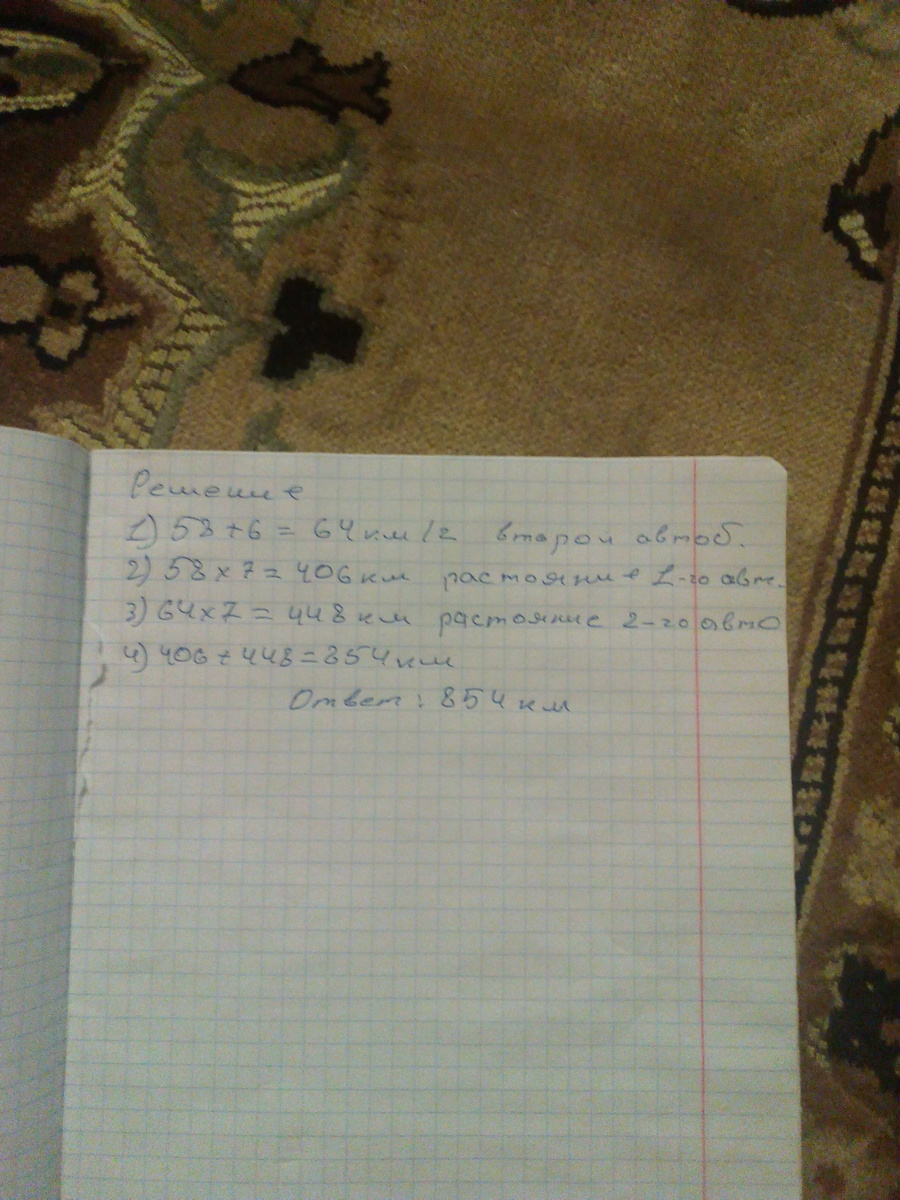 Решение
1) 58+6 = 64 км/г второй автоб.
2) 58×7 = 406 км растояние 1-го авт.
3) 64×7 = 448 км растояние 2-го авто
4) 406+448=854 км
Ответ: 854 км